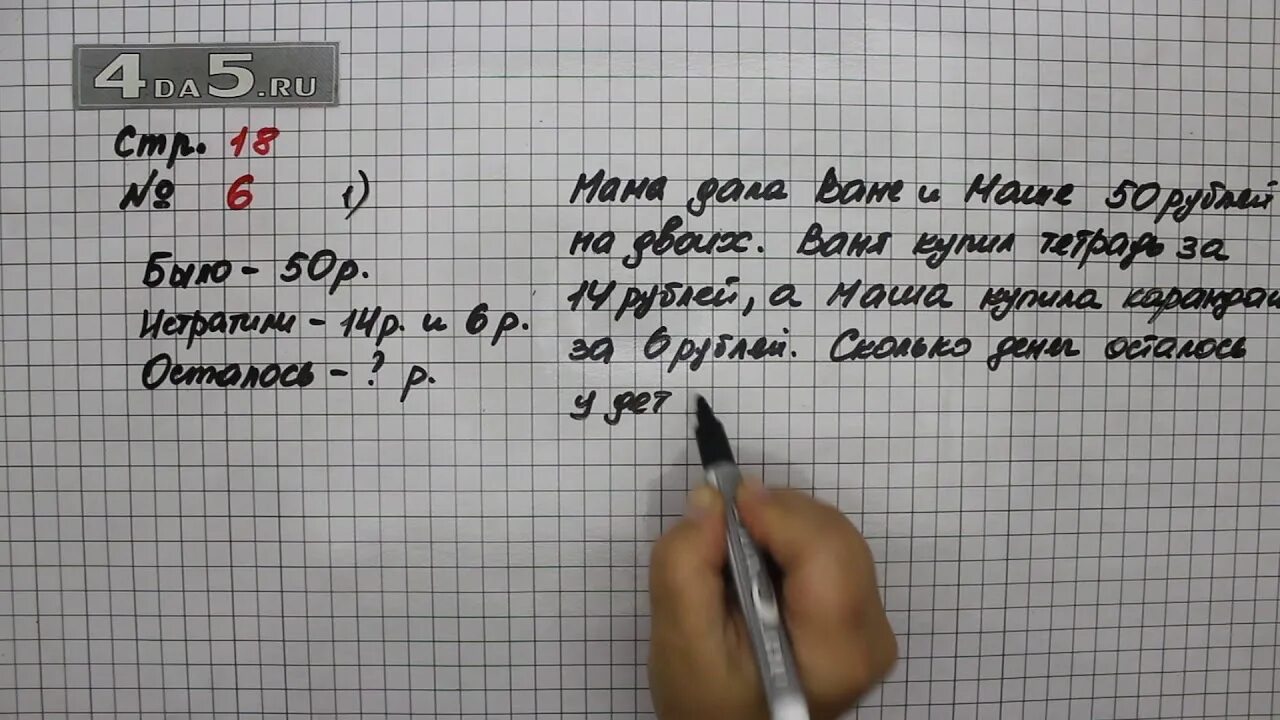 4DA5.RU
Стр. 18
№ 6 1)
Было - 50р.
Истратили - 14р. и 6 р.
Осталось - ? р.
Мама дала Ване и Маше 50 рублей
на двоих. Ваня купил тетрадь за
14 рублей, а Маша купила каранда
за 6 рублей. Сколько денег осталось
у дет